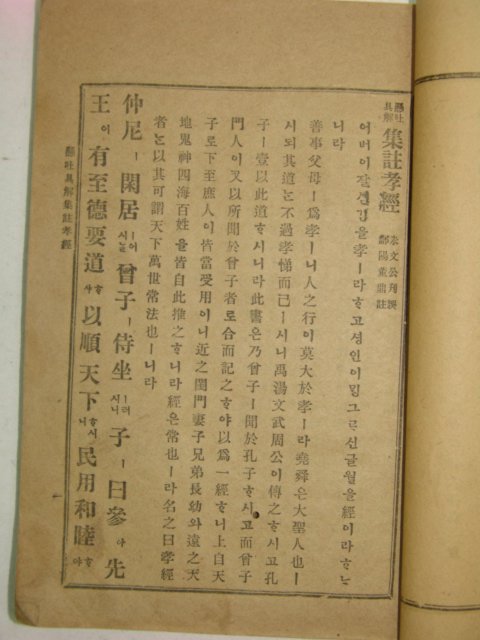 懸吐具解 集註孝經 朱文公刊誤 鄱陽董鼎註
어버이잘셤김을孝ㅣ라ᄒᆞ고셩인이밍그르신글월을經이라ᄒᆞᄂ
니라
善事父母ㅣ爲孝ㅣ니人之行이莫大於孝ㅣ라堯舜은大聖人也ㅣ
시되其道ᄂᆞᆫ不過孝悌而已ㅣ시니禹湯文武周公이傳之ᄒᆞ시고孔
子ㅣ壹以此道ㅣ시니라此書은乃曾子ㅣ聞於孔子ᄒᆞ시고而曾子
門人이又以所聞於曾子者로合而記之ᄒᆞ야以爲一經ᄒᆞ니上自天
子로下至庶人이皆當受用이니近之閨門妻子兄弟長幼와遠之天
地鬼神四海百姓을皆自此推之ᄒᆞ니라經은常也ㅣ라名之曰孝經
者ᄂᆞᆫ以其可謂天下萬世常法也ㅣ니라
仲尼ㅣ閑居ㅣ어시늘曾子ㅣ侍坐ㅣ러시니子ㅣ曰參아先
王이有至德要道ᄒᆞ사以順天下ᄒᆞ시니民用和睦ᄒᆞ야
懸吐具解集註孝經